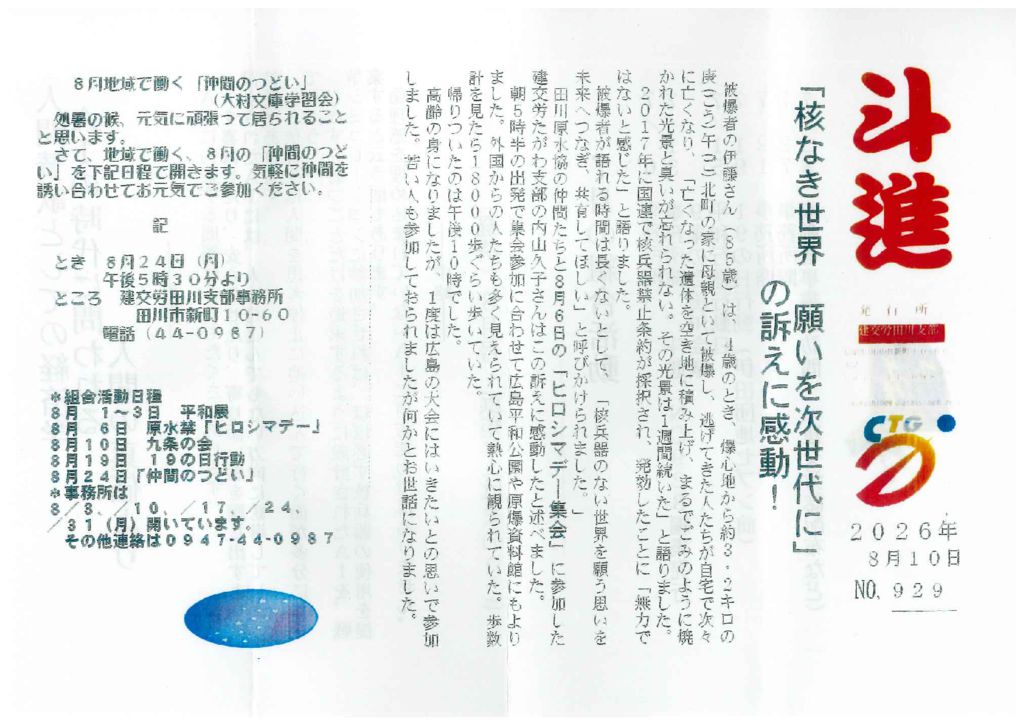 斗進
発行所
建交労田川支部
CTG
2026年
8月10日
NO、929
「核なき世界　願いを次世代に」
の訴えに感動！
被爆者の伊藤さん（85歳）は、4歳のとき、爆心地から約3・2キロの
庚（こう）午（ご）北町の家に母親といて被爆し、逃げてきた人たちが自宅で次々
に亡くなり、「亡くなった遺体を空き地に積み上げ、まるでごみのように焼
かれた光景と臭いが忘れられない。その光景は1週間続いた」と語りました。
2017年に国連で核兵器禁止条約が採択され、発効したことに「無力で
はないと感じた」と語りました。
被爆者が語れる時間は長くないとして、「核兵器のない世界を願う思いを
未来へつなぎ、共有してほしい」と呼びかけられました。」
田川原水協の仲間たちと8月6日の「ヒロシマデー集会」に参加した
建交労たがわ支部の内山久子さんはこの訴えに感動したと述べました。
朝5時半の出発で集会参加に合わせて広島平和公園や原爆資料館にもより
ました。外国からの人たちも多く見えられていて熱心に観られていた。歩数
計を見たら18000歩ぐらい歩いていた。
帰りついたのは午後10時でした。
高齢の身になりましたが、1度は広島の大会にはいきたいとの思いで参加
しました。若い人も参加しておられましたが何かとお世話になりました。
8月地域で働く「仲間のつどい」
（大村文庫学習会）
処暑の候、元気に頑張って居られること
と思います。
さて、地域で働く、8月の「仲間のつど
い」を下記日程で開きます。気軽に仲間を
誘い合わせてお元気でご参加ください。
記
とき　8月24日（月）
午後5時30分より
ところ　建交労田川支部事務所
田川市新町10-60
電話（44-0987）
＊組合活動日程
8月　1～3日　平和展
8月　6日　原水禁「ヒロシマデー」
8月10日　九条の会
8月19日　19の日行動
8月24日「仲間のつどい」
＊事務所は
8／3、／10、／17、／24、
／31（月）開いています。
その他連絡は0947-44-0987